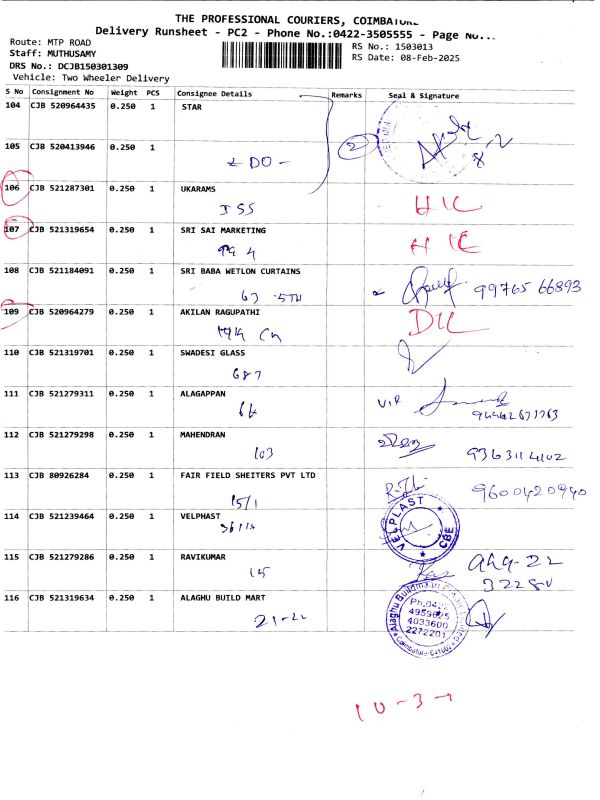 THE PROFESSIONAL COURIERS,
Delivery Runsheet - PC2 - Phone No.:0422-3505555 - Page
Route: MTP ROAD
RS No.: 1503013
Staff: MUTHUSAMY
RS Date: 08-Feb-2025
DRS No.: DCJB150301309
Vehicle: Two Wheeler Delivery
S No Consignment No Weight PCS Consignee Details Remarks Seal & Signature
104 CJB 520964435 0.250 1 STAR
105 CJB 520413946 0.250 1 2
- DO -
106 CJB 521287301 0.250 1 UKARAMS
107 CJB 521319654 0.250 1 SRI SAI MARKETING
108 CJB 521184091 0.250 1 SRI BABA WETLON CURTAINS
63 99765 66893
109 CJB 520964279 0.250 1 AKILAN RAGUPATHI
110 CJB 521319701 0.250 1 SWADESI GLASS
687
111 CJB 521279311 0.250 1 ALAGAPPAN
112 CJB 521279298 0.250 1 MAHENDRAN
103
113 CJB 80926284 0.250 1 FAIR FIELD SHEITERS PVT LTD
15/1 9600420940
114 CJB 521239464 0.250 1 VELPHAST
VELPLAST CBE
115 CJB 521279286 0.250 1 RAVIKUMAR
15
116 CJB 521319634 0.250 1 ALAGHU BUILD MART
21-22
Ph.0422
4959625
4033600
2272201
10-3-